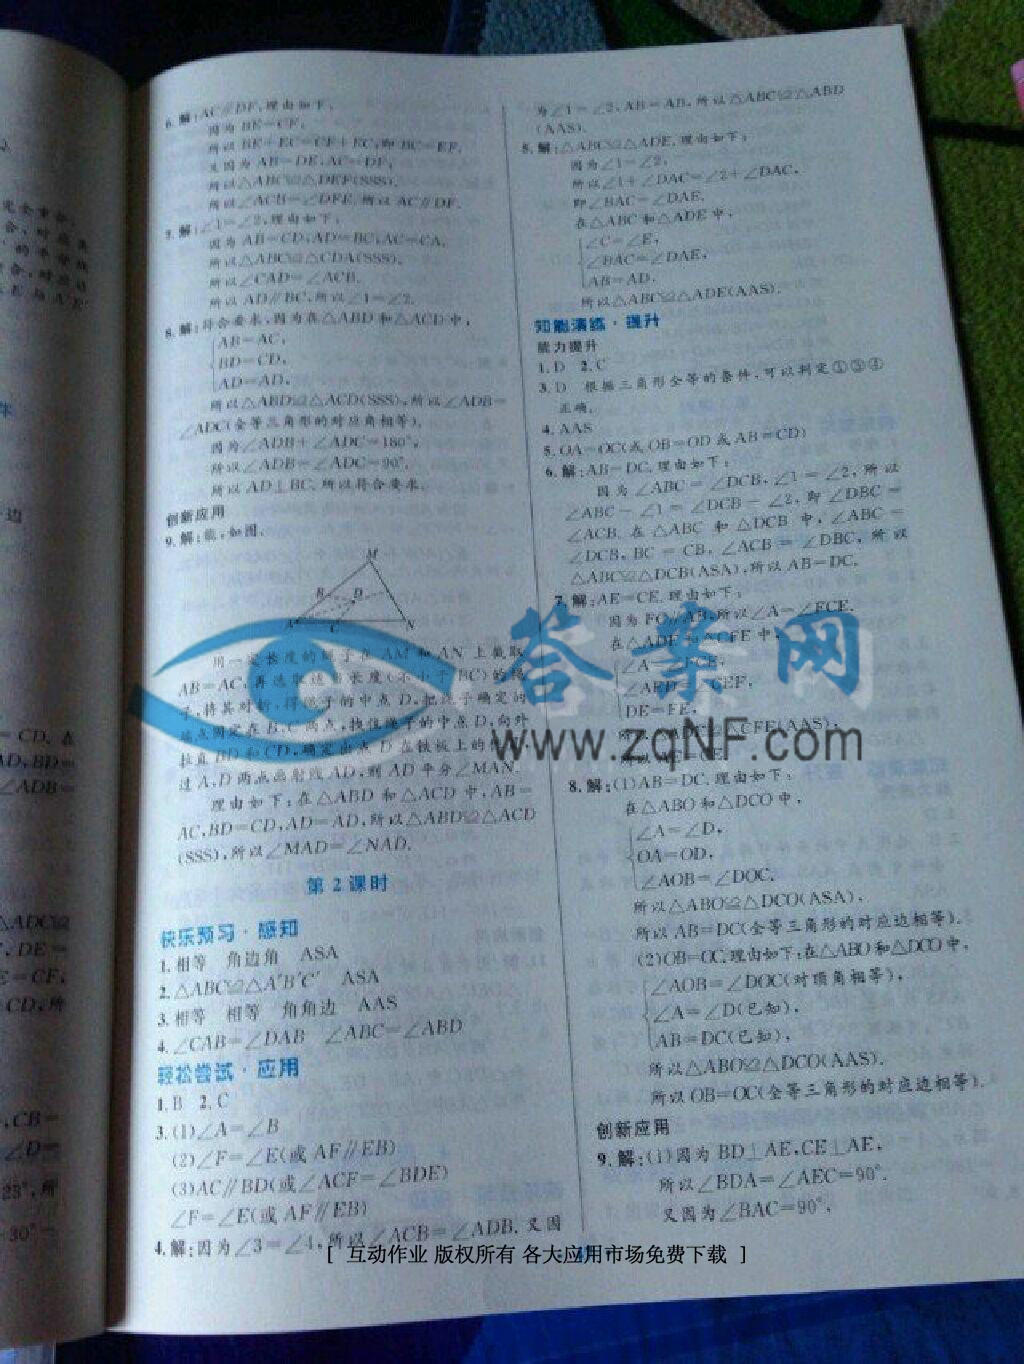 6.解:AC∥DF,理由如下:
因为 BE=CF,
所以 BE+EC=CF+EC,即 BC=EF.
又因为 AB=DE,AC=DF,
所以△ABC≌△DEF(SSS).
所以∠ACB=∠DFE.所以 AC∥DF.
7.解:∠1=∠2,理由如下:
因为 AB=CD,AD=BC,AC=CA,
所以△ABC≌△CDA(SSS).
所以∠CAD=∠ACB.
所以 AD∥BC.所以∠1=∠2.
8.解:符合要求,因为在△ABD 和△ACD 中,
AB=AC,
BD=CD,
AD=AD,
所以△ABD≌△ACD(SSS),所以∠ADB=
∠ADC(全等三角形的对应角相等).
因为∠ADB+∠ADC=180°,
所以∠ADB=∠ADC=90°.
所以 AD⊥BC.所以符合要求.
创新应用
9.解:能,如图.
M
B D
A C N
用一定长度的绳子在 AM 和 AN 上截取
AB=AC,再选取适当长度(不小于 BC)的绳
子,将其对折,得绳子的中点 D,把绳子确定的
端点固定在 B,C 两点,拽住绳子的中点 D,向外
拉直 BD 和 CD,确定出点 D 在铁板上的位置,
过 A,D 两点画射线 AD,则 AD 平分∠MAN.
理由如下:在△ABD 和△ACD 中,AB=
AC,BD=CD,AD=AD,所以△ABD≌△ACD
(SSS),所以∠MAD=∠NAD.
第 2 课时
快乐预习·感知
1.相等 角边角 ASA
2.△ABC≌△A'B'C' ASA
3.相等 相等 角角边 AAS
4.∠CAB=∠DAB ∠ABC=∠ABD
轻松尝试·应用
1.B 2.C
3.(1)∠A=∠B
(2)∠F=∠E(或 AF∥EB)
(3)AC∥BD(或∠ACF=∠BDE)
∠F=∠E(或 AF∥EB)
4.解:因为∠3=∠4,所以∠ACB=∠ADB.又因
为∠1=∠2,AB=AB,所以△ABC≌△ABD
(AAS).
5.解:△ABC≌△ADE.理由如下:
因为∠1=∠2,
所以∠1+∠DAC=∠2+∠DAC,
即∠BAC=∠DAE.
在△ABC 和△ADE 中,
∠C=∠E,
∠BAC=∠DAE,
AB=AD.
所以△ABC≌△ADE(AAS).
知能演练·提升
能力提升
1.D 2.C
3.D 根据三角形全等的条件,可以判定①③④
正确.
4.AAS
5.OA=OC(或 OB=OD 或 AB=CD)
6.解:AB=DC.理由如下:
因为∠ABC=∠DCB,∠1=∠2,所以
∠ABC-∠1=∠DCB-∠2,即∠DBC=
∠ACB.在△ABC 和△DCB 中,∠ABC=
∠DCB,BC=CB,∠ACB=∠DBC,所以
△ABC≌△DCB(ASA),所以 AB=DC.
7.解:AE=CE.理由如下:
因为 FC∥AB,所以∠A=∠FCE.
在△ADE 和△CFE 中,
∠A=∠FCE,
∠AED=∠CEF,
DE=FE,
所以△ADE≌△CFE(AAS),
所以 AE=CE.
8.解:(1)AB=DC.理由如下:
在△ABO 和△DCO 中,
∠A=∠D,
OA=OD,
∠AOB=∠DOC.
所以△ABO≌△DCO(ASA).
所以 AB=DC(全等三角形的对应边相等).
(2)OB=OC.理由如下:在△ABO和△DCO中,
∠AOB=∠DOC(对顶角相等),
∠A=∠D(已知),
AB=DC(已知),
所以△ABO≌△DCO(AAS).
所以 OB=OC(全等三角形的对应边相等).
创新应用
9.解:(1)因为 BD⊥AE,CE⊥AE,
所以∠BDA=∠AEC=90°.
又因为∠BAC=90°,
答案网
www.zqNF.com
[ 互动作业 版权所有 各大应用市场免费下载 ]